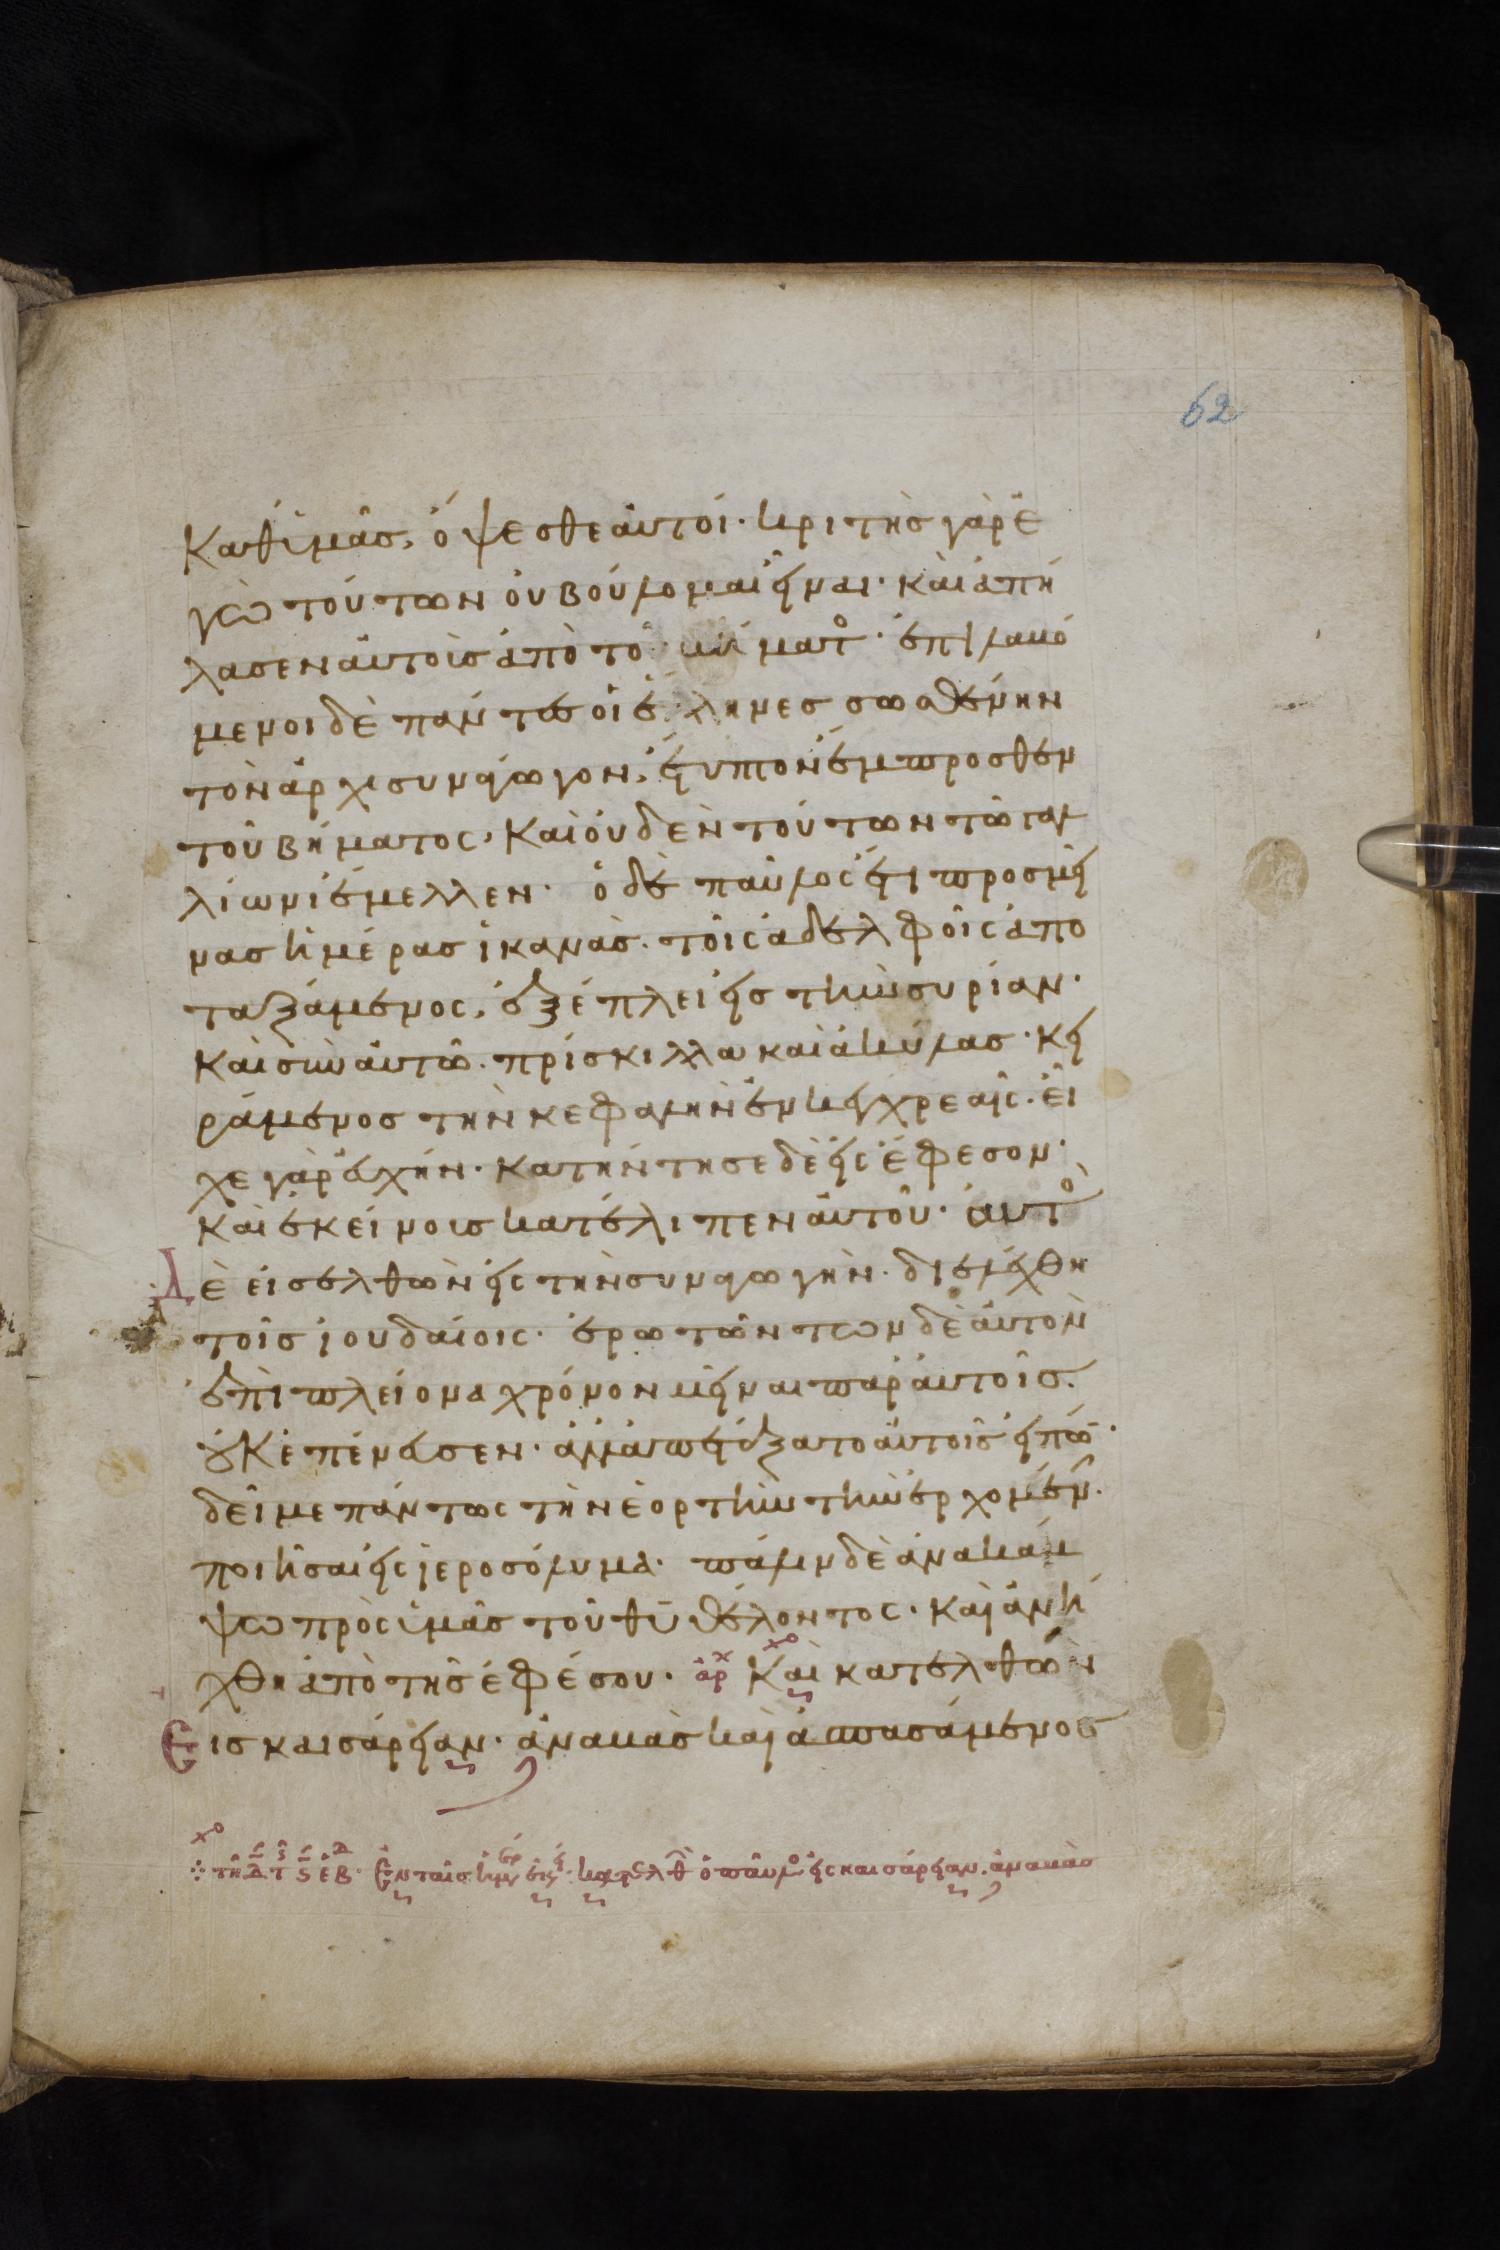 62
καθ ὑμᾶς, ὄψεσθε αὐτοί· κριτὴς γὰρ ἐ
γὼ τούτων οὐ βούλομαι εἶναι· καὶ ἀπή
λασεν αὐτοὺς ἀπὸ τοῦ βήματο· ἐπιλαβό
μενοι δὲ πάντες οἱ ἕλληνες σωσθένην
τὸν ἀρχισυνάγωγον, ἔτυπτον ἔμπροσθεν
τοῦ βήματος, καὶ οὐδὲν τούτων τῶ γαλ
λίωνι ἔμελλεν· ὁ δὲ παῦλος ἔτι προσμεί
νας ἡμέρας ἱκανὰς· τοῖς ἀδελφοῖς ἀπο
ταξάμενος, ἐξέπλει εἰς τὴν συρίαν·
καὶ σὺν αὐτῶ· πρίσκιλλα καὶ ἀκύλας· κει
ράμενος τὴν κεφαλὴν ἐν κεγχρεαῖς· εἶ
χε γὰρ εὐχήν· κατήντησε δὲ εἰς ἔφεσον·
καὶ ἐκείνους κατέλιπεν αὐτοῦ· αὐτὸ
Δὲ εἰσελθὼν εἰς τὴν συναγωγὴν· διελέχθη
τοῖς ἰουδαίοις· ἐρωτώντων δὲ αὐτὸν
ἐπὶ πλείονα χρόνον μεῖναι παρ αὐτοῖς.
οὐκ ἐπένευσεν· ἀλλ ἀπετάξατο αὐτοῖς εἰπώ·
δεῖ με πάντως τὴν ἑορτὴν τὴν ἐρχομένην.
ποιῆσαι εἰς ἱεροσόλυμα· πάλιν δὲ ἀνακάμ
ψω πρὸς ὑμᾶς τοῦ θυ θέλοντος· καὶ ἀνή
χθη ἀπὸ τῆς ἐφέσου· ἀρχ καὶ κατελθὼν
Εἰς καισάρειαν· ἀναβὰς καὶ ἀσπασάμενος
τῆ Δ τ ς εβ· Ἐν ταῖς ἡμέρ ἐκεί· κατελθ ὁ παῦλο εἰς καισάρειαν· ἀναβὰς